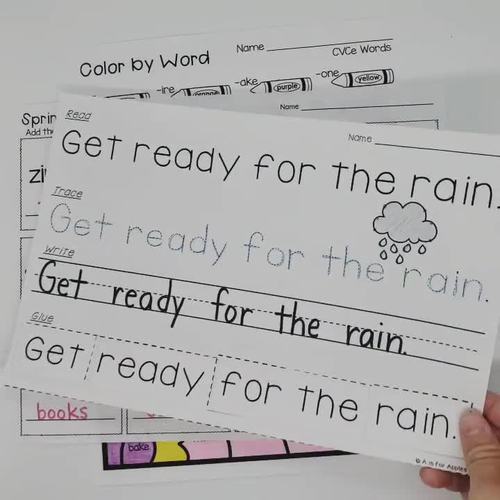 Color by Word
Name
CVCe Words
-ire
orange
-ake
purple
-one
yellow
Name
Add the
Read
Name
Get ready for the rain.
Trace
Get ready for the rain.
Write
Get ready for the rain.
Glue
Get ready for the rain.
books
bake
© A is for Apples